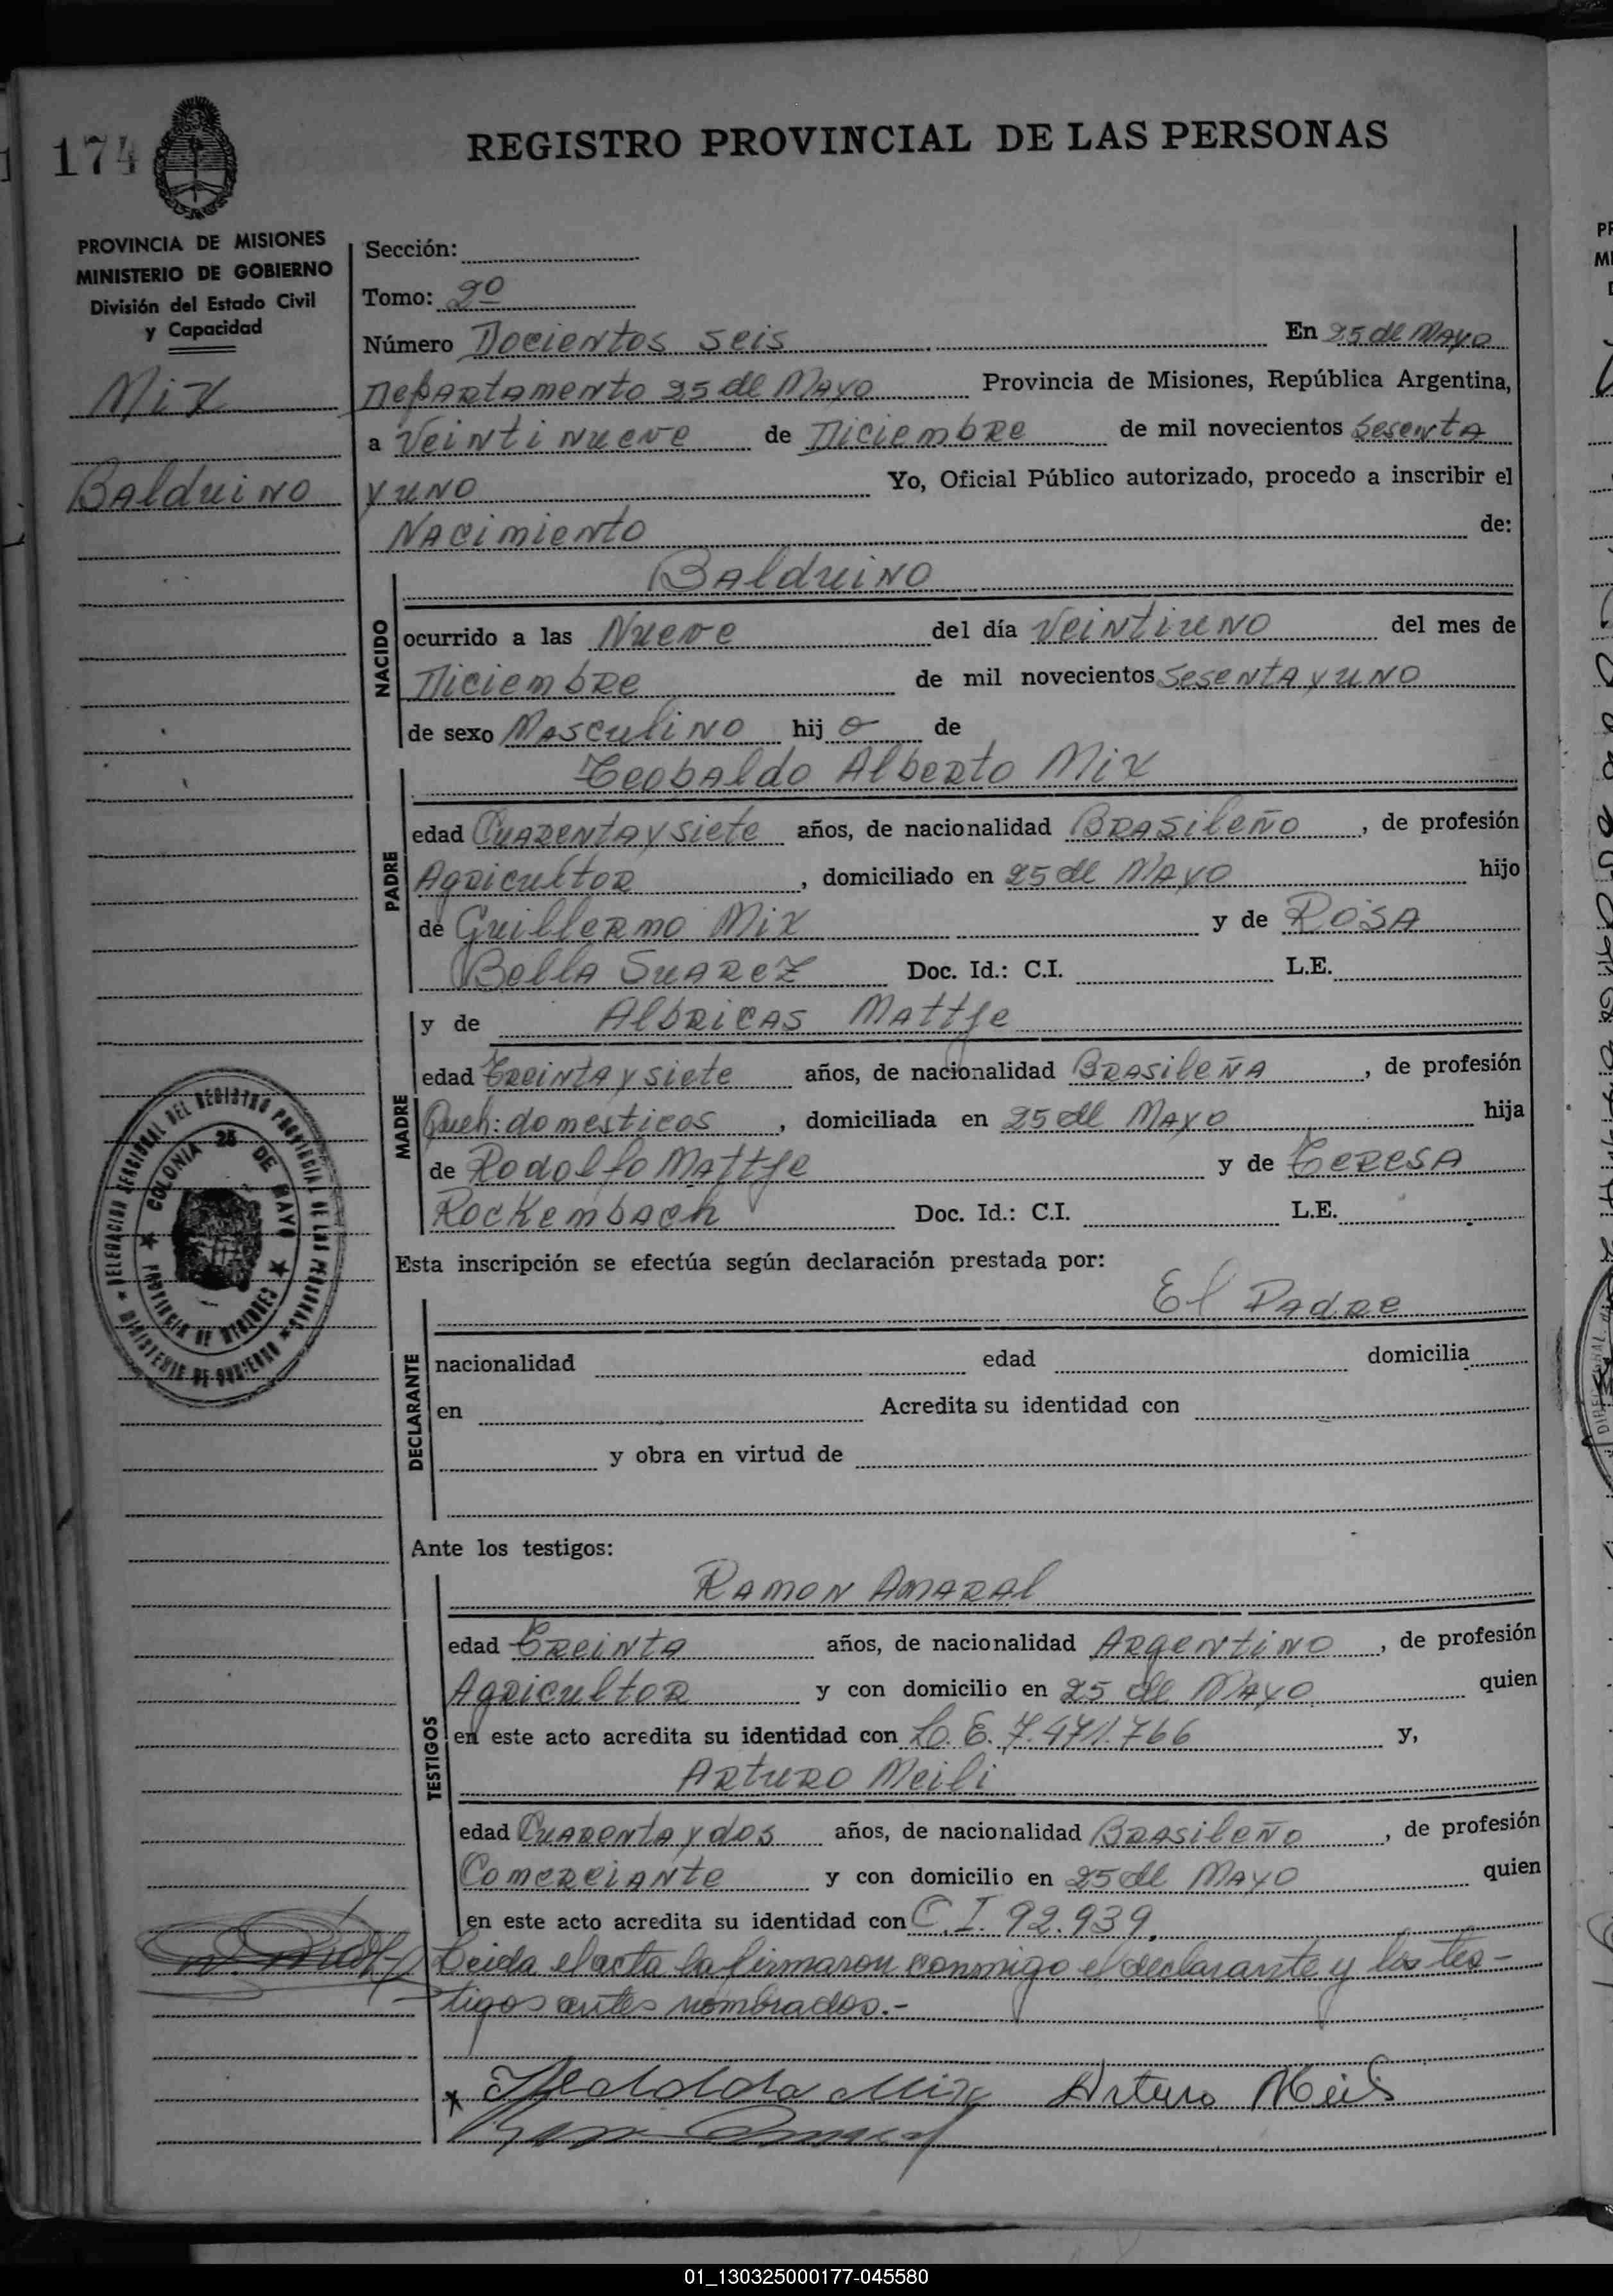 174
REGISTRO PROVINCIAL DE LAS PERSONAS
PROVINCIA DE MISIONES
MINISTERIO DE GOBIERNO
División del Estado Civil
y Capacidad
Mix
Balduino
Sección:
Tomo: 2º
Número Docientos seis En 25 de Mayo
Departamento 25 de Mayo Provincia de Misiones, República Argentina,
a Veintinueve de Diciembre de mil novecientos Sesenta
y uno Yo, Oficial Público autorizado, procedo a inscribir el
Nacimiento de:
Balduino
NACIDO
ocurrido a las Nueve del día Veintiuno del mes de
Diciembre de mil novecientos Sesenta y uno
de sexo Masculino hij o de
Teobaldo Alberto Mix
PADRE
edad Cuarenta y siete años, de nacionalidad Brasileño, de profesión
Agricultor, domiciliado en 25 de Mayo hijo
de Guillermo Mix y de Rosa
Bella Suarez Doc. Id.: C.I. L.E.
y de Albricas Mattje
MADRE
edad Treinta y siete años, de nacionalidad Brasileña, de profesión
Queh: domesticos, domiciliada en 25 de Mayo hija
de Rodolfo Mattje y de Teresa
Rockembach Doc. Id.: C.I. L.E.
DELEGACION SECCIONAL DEL REGISTRO PROVINCIAL DE LAS PERSONAS
MINISTERIO DE GOBIERNO
COLONIA 25 DE MAYO
PROVINCIA DE MISIONES
Esta inscripción se efectúa según declaración prestada por:
El Padre
DECLARANTE
nacionalidad edad domicilia
en Acredita su identidad con
y obra en virtud de
Ante los testigos:
Ramon Amaral
TESTIGOS
edad Treinta años, de nacionalidad Argentino, de profesión
Agricultor y con domicilio en 25 de Mayo quien
en este acto acredita su identidad con L.E. 7.471.766 y,
Arturo Meili
edad Cuarenta y dos años, de nacionalidad Brasileño, de profesión
Comerciante y con domicilio en 25 de Mayo quien
en este acto acredita su identidad con C.I. 92.939.
Leida el acta la firmaron conmigo el declarante y los tes-
tigos antes nombrados.-
Arturo Meili
01_130325000177-045580